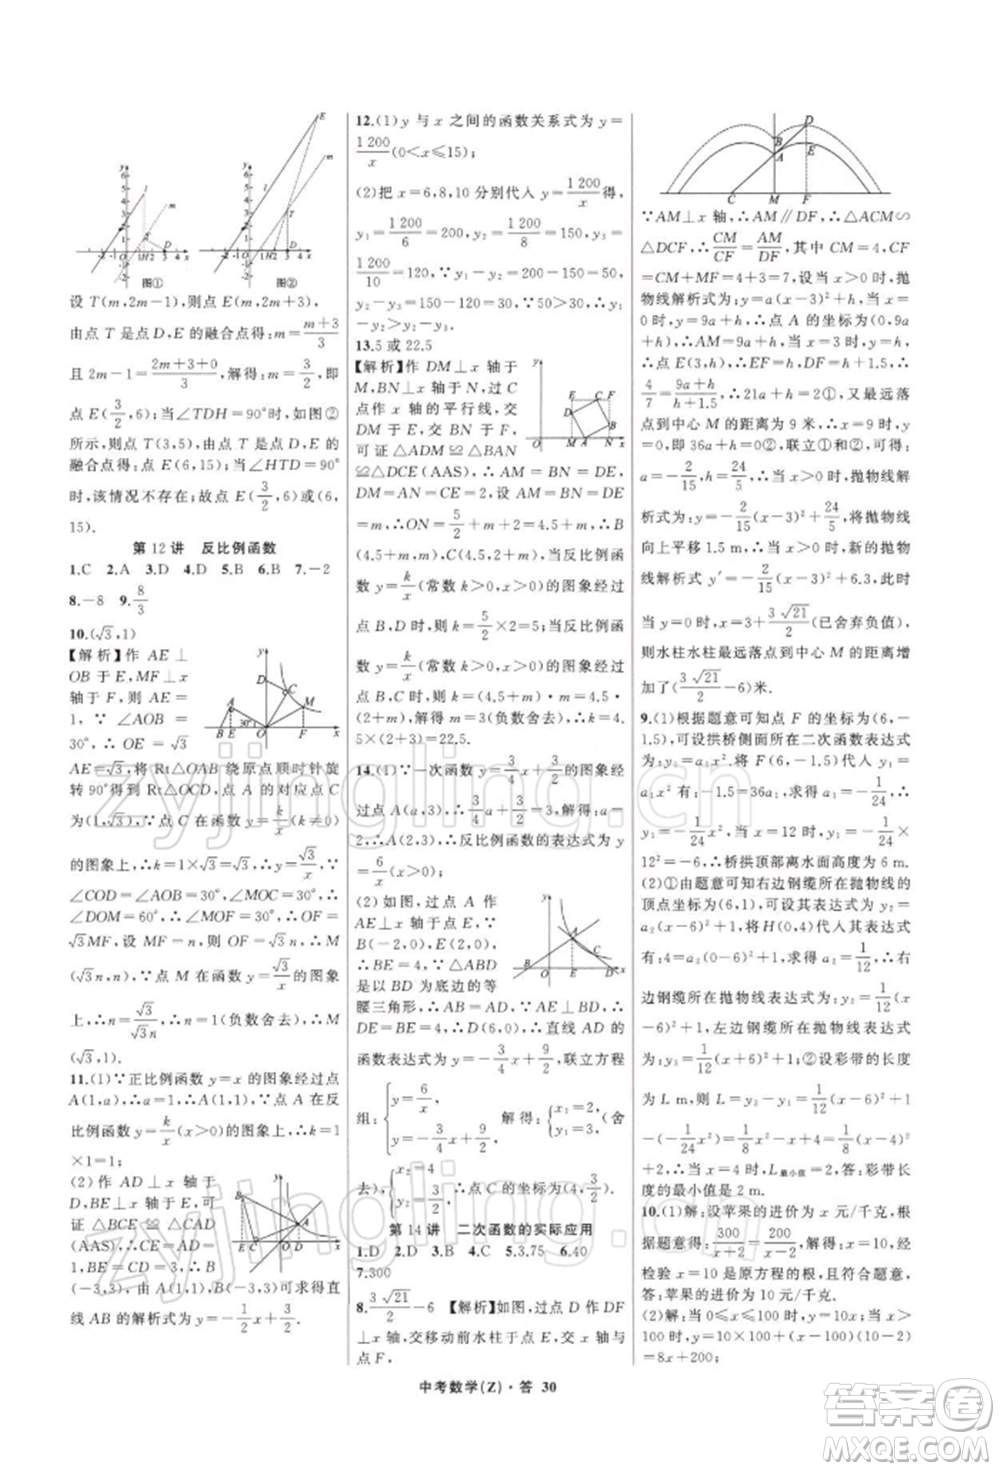 设 T(m,2m−1),则点 E(m,2m−1+
由点 T 是点 D,E 的融合点得:m=(m+3)/3
且 2m−1=(2m+3+0)/3,解得:m=3/2,即
点 E(3/2,6);当∠TDH=90°时,如图②
所示,则点 T(3,5),由点 T 是点 D,E 的
融合点得:点 E(6,15);当∠HTD=90°
时,该情况不存在;故点 E(3/2,6)或(6,
15).
第 12 讲 反比例函数
1.C 2.A 3.D 4.D 5.B 6.B 7.−2
8.−8 9.8/3
10.(√3,1)
【解析】作 AE⊥
OB 于 E,MF⊥x
轴于 F,则 AE=
1,∵∠AOB=
30°,∴OE=√3
AE=√3,将 Rt△OAB 绕原点顺时针旋
转 90°得到 Rt△OCD,点 A 的对应点 C
为(1,√3),∵点 C 在函数 y=k/x(k≠0)
的图象上,∴k=1×√3=√3,∴y=√3/x,∵
∠COD=∠AOB=30°,∠MOC=30°,∴
∠DOM=60°,∴∠MOF=30°,∴OF=
√3MF,设 MF=n,则 OF=√3n,∴M
(√3n,n),∵点 M 在函数 y=√3/x 的图象
上,∴n=√3/(√3n),∴n=1(负数舍去),∴M
(√3,1).
11.(1)∵正比例函数 y=x 的图象经过点
A(1,a),∴a=1,∴A(1,1),∵点 A 在反
比例函数 y=k/x(x>0)的图象上,∴k=1
×1=1;
(2)作 AD⊥x 轴于
D,BE⊥x 轴于 E,可
证△BCE≌△CAD
(AAS),∴CE=AD=
1,BE=CD=3,∴B
(−3,3),由点 A(1,1),B(−3,3)可求得直
线 AB 的解析式为 y=−1/2x+3/2.
12.(1)y 与 x 之间的函数关系式为 y=
1 200/x(0<x≤15);
(2)把 x=6,8,10 分别代入 y=1 200/x 得,
y₁=1 200/6=200,y₂=1 200/8=150,y₃=1 200/
10=120,∵y₁−y₂=200−150=50,y₂
−y₃=150−120=30,∵50>30,∴y₁
−y₂>y₂−y₃.
13.5 或 22.5
【解析】作 DM⊥x 轴于
M,BN⊥x 轴于 N,过 C
点作 x 轴的平行线,交
DM 于 E,交 BN 于 F,
可证△ADM≌△BAN
≌△DCE(AAS),∴AM=BN=DE,
DM=AN=CE=5/2,设 AM=BN=DE
=m,∴ON=5/2+m+2=4.5+m,∴B
(4.5+m,m),当反比例函
数 y=k/x(常数 k>0,x>0)的图象经过
点 B,D 时,则 k=5/2×2=5;当反比例函
数 y=k/x(常数 k>0,x>0)的图象经过
点 B,C 时,则 k=(4.5+m)·m=4.5·
(2+m),解得 m=3(负数舍去),∴k=
4.5×(2+3)=22.5.
14.(1)∵一次函数 y=3/4x+3/2的图象经
过点 A(a,3),∴3/4a+3/2=3,解得 a=
2,∴A(2,3),∴反比例函数的表达式为 y
=6/x(x>0);
(2)如图,过点 A 作
AE⊥x 轴于点 E,∵
B(−2,0),E(2,0),
∴BE=4,∵△ABD
是以 BD 为底边的等
腰三角形,∴AB=AD,∵AE⊥BD,∴
DE=BE=4,∴D(6,0),∴直线 AD 的
函数表达式为 y=−3/4x+9/2,联立方程
组:{y=6/x, y=−3/4x+9/2, 解得:{x₁=2, y₁=3,(舍
去),{x₂=4, y₂=3/2, ∴点 C 的坐标为(4,3/2).
第 14 讲 二次函数的实际应用
1.D 2.D 3.B 4.C 5.3.75 6.40
7.300
8.3√21/2−6 【解析】如图,过点 D 作 DF
⊥x 轴,交移动前水柱于点 E,交 x 轴与
点 F,
∵AM⊥x 轴,∴AM∥DF,∴△ACM∽
△DCF,∴CM/CF=AM/DF,其中 CM=4,CF
=CM+MF=4+3=7,设当 x>0 时,抛
物线解析式为:y=a(x−3)²+h,当 x=0
时,y=9a+h,∴点 A 的坐标为(0,9a
+h),∴AM=9a+h.∵点 E 为抛物线顶
点,∴点 E(3,h),∴EF=h,DF=h+1.5,∴
4/7=(9a+h)/(h+1.5),∴21a+h=2①,又最远落
点到中心 M 的距离为 9 米,∴x=9 时,y
=0,即:36a+h=0②,联立①和②,可得:
a=−2/15,h=24/5,∴当 x>0 时,抛物线解
析式为:y=−2/15(x−3)²+24/5,将抛物线
向上平移 1.5 m,则当 x>0 时,可得抛物
线解析式 y′=−2/15(x−3)²+6.3,此时
当 y=0 时,x=3+3√21/2(已舍弃负值),
则水柱水柱最远落点到中心 M 的距离增
加了(3√21/2−6)米.
9.(1)根据题意可知点 F 的坐标为(6,−
1.5),可设拱桥侧面所在二次函数表达式
为:y₁=a₁x².将 F(6,−1.5)代入 y₁=
a₁x² 有:−1.5=36a₁,求得 a₁=−1/24,∴
y₁=−1/24x²,当 x=12 时,y₁=−1/24×
12²=−6,∴桥拱顶部离水面高度为 6 m.
(2)①由题意可知右边钢缆所在抛物线的
顶点坐标为(6,1),可设其表达式为 y₂=
a₂(x−6)²+1,将 H(0,4)代入其表达式
有:4=a₂(0−6)²+1,求得 a₂=1/12,∴右
边钢缆所在抛物线表达式为:y₂=1/12(x−
6)²+1,左边钢缆所在抛物线表达式为:
y₃=1/12(x+6)²+1;②设彩带的长度
为 L m,则 L=y₂−y₁=1/12(x−6)²+1
−(−1/24x²)=1/8x²−x+4=1/8(x−4)²
+2,∴当 x=4 时,L最小值=2,答:彩带长
度的最小值是 2 m.
10.(1)解:设苹果的进价为 x 元/千克,
根据题意得:300/(x+2)=200/(x−2),解得:x=10,经
检验 x=10 是原方程的根,且符合题意,
答:苹果的进价为 10 元/千克.
(2)解:当 0≤x≤100 时,y=10x;当 x>
100 时,y=10×100+(x−100)(10−2)
=8x+200;
中考数学(Z)·答 30
zyjingling.cn
zyjingling.cn
答案圈
MXQE.COM
图①
图②